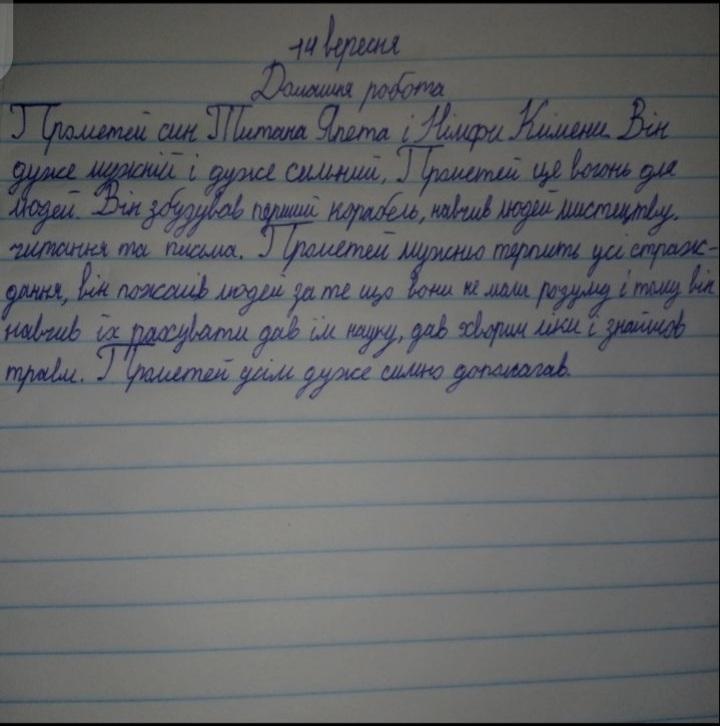 14 вересня
Домашня робота
Прометей син Титана Япета і Німфи Кімени. Він
дуже мужній і дуже сильний. Прометей це вогонь для
людей. Він збузував перший корабель, навчив людей мистецтву,
читання та письма. Прометей мужньо терпить усі страж-
дання, він пожалів людей за те що вони не мали розуму і тому він
навчив їх рахувати дав їм науку, дав хворим ліки і знайшов
трави. Прометей усім дуже сильно допомагав.